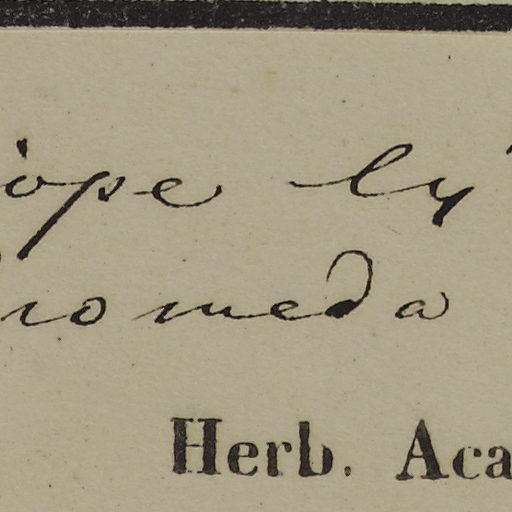 iope ly
romeda
Herb. Aca